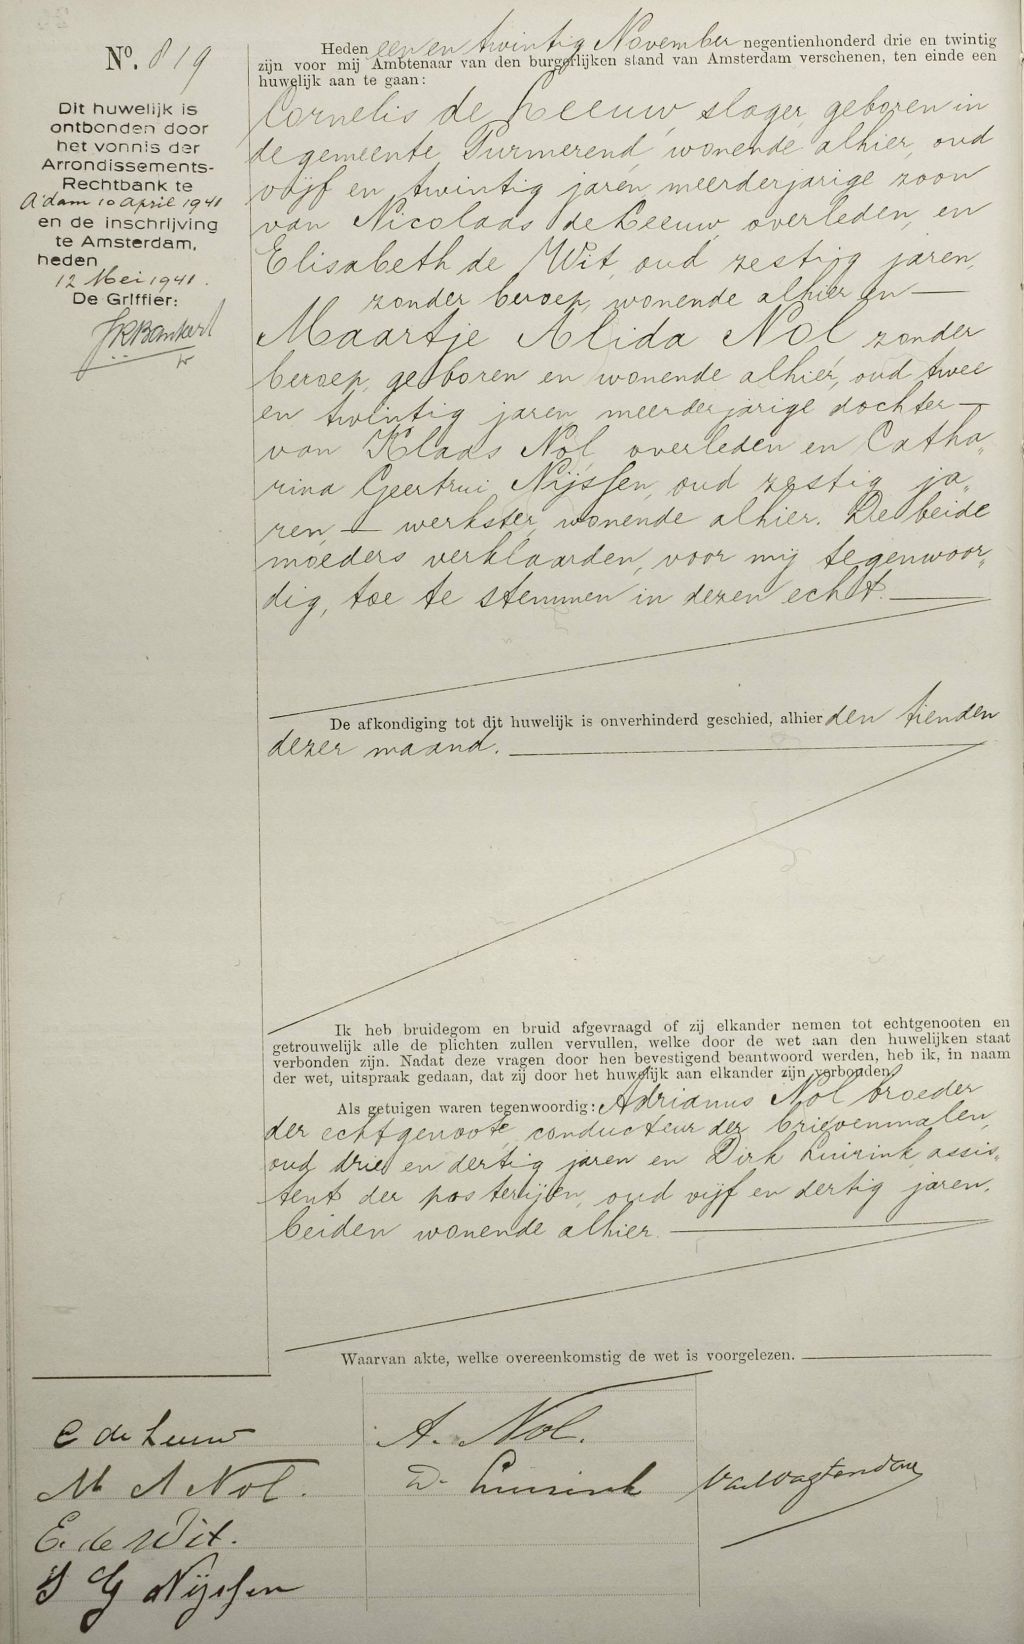 No. 819
Dit huwelijk is
ontbonden door
het vonnis der
Arrondissements-
Rechtbank te
A'dam 10 april 1941
en de inschrijving
te Amsterdam,
heden
12 Mei 1941.
De Griffier:
Heden een en twintig November negentienhonderd drie en twintig
zijn voor mij Ambtenaar van den burgerlijken stand van Amsterdam verschenen, ten einde een
huwelijk aan te gaan:
Cornelis de Leeuw, slager, geboren in
de gemeente Purmerend, wonende alhier, oud
vijf en twintig jaren, meerderjarige zoon
van Nicolaas de Leeuw, overleden, en
Elisabeth de Wit, oud zestig jaren,
zonder beroep, wonende alhier en —
Maartje Alida Nol zonder
beroep, geboren en wonende alhier, oud twee
en twintig jaren, meerderjarige dochter —
van Klaas Nol, overleden en Catha„
rina Geertrui Nijssen, oud zestig ja„
ren, — werkster, wonende alhier. De beide
moeders verklaarden, voor mij tegenwoor„
dig, toe te stemmen in dezen echt. —
De afkondiging tot dit huwelijk is onverhinderd geschied, alhier den tienden
dezer maand. —
Ik heb bruidegom en bruid afgevraagd of zij elkander nemen tot echtgenooten en
getrouwelijk alle de plichten zullen vervullen, welke door de wet aan den huwelijken staat
verbonden zijn. Nadat deze vragen door hen bevestigend beantwoord werden, heb ik, in naam
der wet, uitspraak gedaan, dat zij door het huwelijk aan elkander zijn verbonden.
Als getuigen waren tegenwoordig: Adrianus Nol broeder
der echtgenoote, conducteur der brievenmalen,
oud drie en dertig jaren en Dirk Luirink, assis„
tent der posterijen, oud vijf en dertig jaren,
beiden wonende alhier. —
Waarvan akte, welke overeenkomstig de wet is voorgelezen. —
C de Leeuw
M A Nol.
E. de Wit.
G Nijssen
A. Nol.
D. Luirink